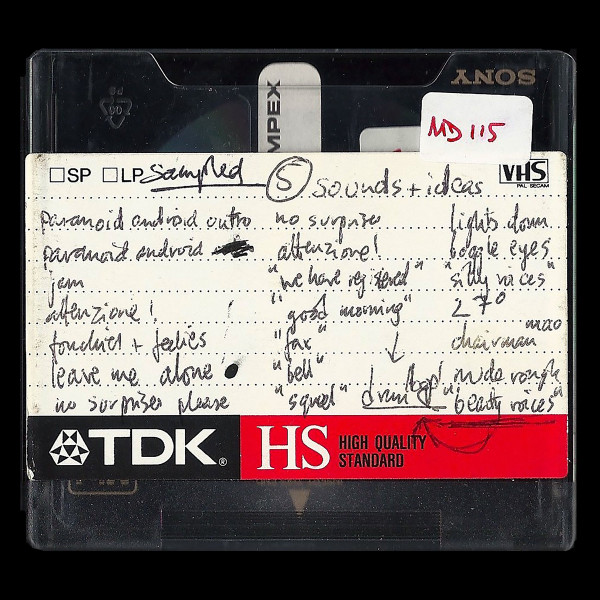 SONY
MPEX
MD 115
SP LP Sampled 5 sounds + ideas VHS
PAL SECAM
paranoid android outro no surprises lights down
paranoid android attenzione! boggle eyes
jam "we have registered" "silly voices"
attenzione! "good morning" 27°
"fax" chairman mao
leave me alone! "bell" nude rough
no surprises please "squeel" drum loop "beauty voices"
TDK HS HIGH QUALITY
STANDARD